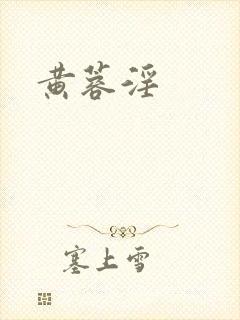 黄蓉淫
塞上雪